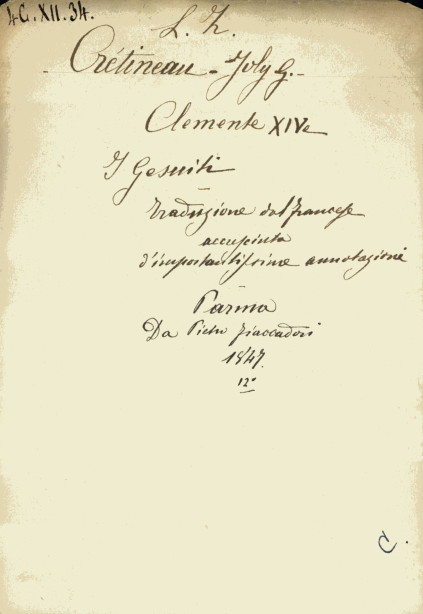 4C.XII.34.
L. Z.
Crétineau-Joly G.
Clemente XIV e
I Gesuiti
Traduzione dal francese
accresciuta
d'importantissime annotazioni
Parma
Da Pietro Fiaccadori
1847.
12°
C.